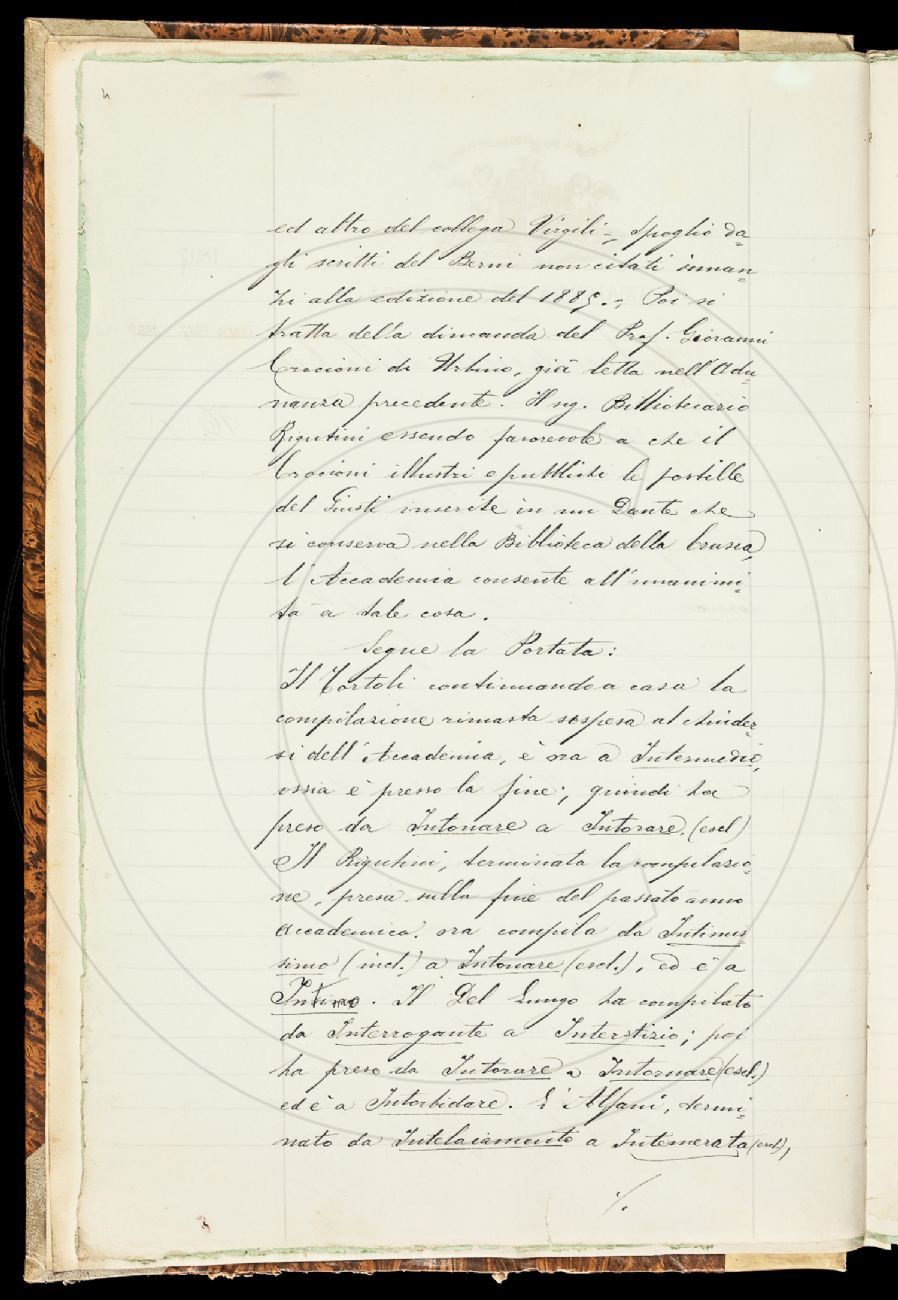 ed altro del collega Virgili -, Spoglio da=
gli scritti del Berni non citati innan=
zi alla edizione del 1885. -, Poi si
tratta della dimanda del Prof. Giovanni
Crocioni di Urbino, già letta nell'Adu=
nanza precedente. Il sig. Bibliotecario
Rigutini essendo favorevole a che il
Crocioni illustri e pubblichi le postille
del Giusti inserite in un Dante che
si conserva nella Biblioteca della Crusca,
l'Accademia consente all'unanimi=
tà a tale cosa.
Segue la Portata:
Il Tortoli continuando a casa la
compilazione rimasta sospesa al chiuder=
si dell'Accademia, è ora a Intermedio,
ossia è presso la fine; quindi ha
preso da Intonare a Intorare. (escl)
Il Rigutini, terminata la compilazio=
ne, presa sulla fine del passato anno
Accademico. ora compila da Intimis=
simo (incl.) a Intonare (escl.), ed è a
Intimo. Il Del Lungo ha compilato
da Interrogante a Interstizio; poi
ha preso da Intorare a Intornare (escl.)
ed è a Intorbidare. L'Alfani, termi=
nato da Intelaiamento a Intemerata (escl),
./.